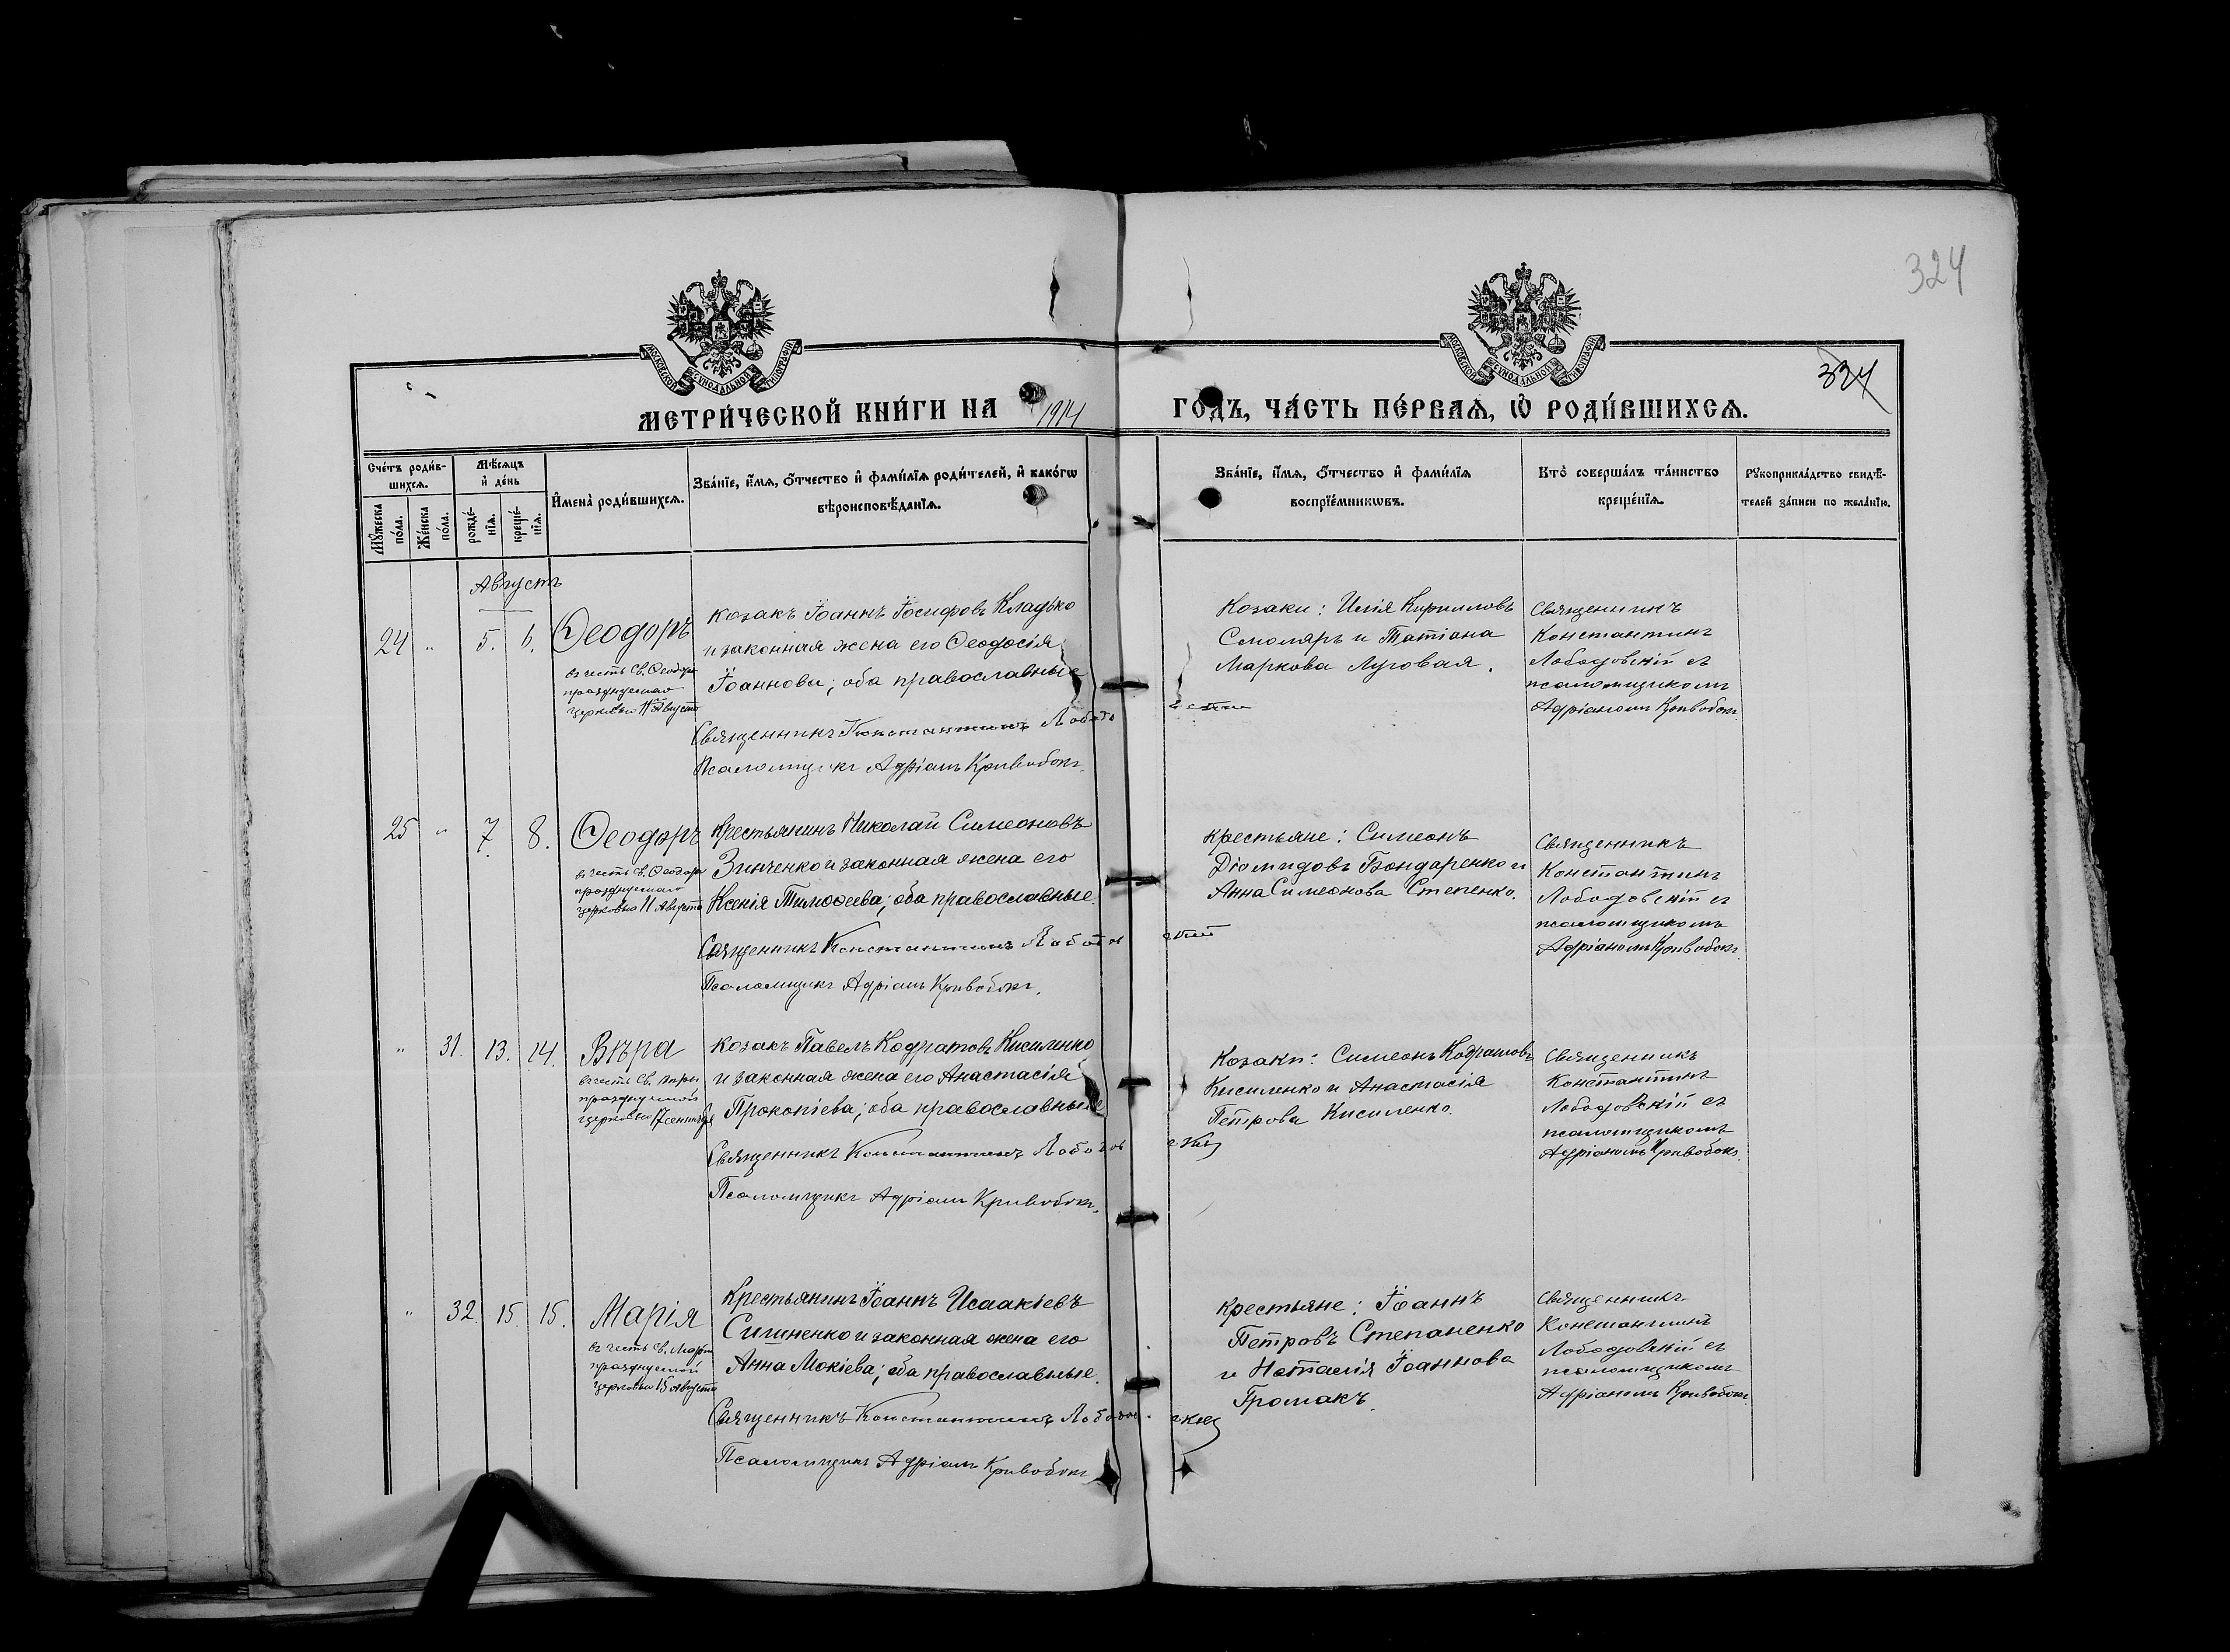 324
324
МОСКОВСКОЙ СѴНОДАЛЬНОЙ ТИПОГРАФІИ
МОСКОВСКОЙ СѴНОДАЛЬНОЙ ТИПОГРАФІИ
МЕТРИ́ЧЕСКОЙ КНИ́ГИ НА 1914 ГО́ДЪ, ЧА́СТЬ ПЕ́РВАѦ, Ѡ҆ РОДИ́ВШИХСѦ.
Сче́тъ роди́в-
шихсѧ.
Мꙋ́жеска по́ла.
Же́нска по́ла.
Мѣ́сѧцъ и҆ де́нь
рожде́-
нїѧ.
креще́-
нїѧ.
И҆мена̀ роди́вшихсѧ.
Зва́нїе, и҆́мѧ, ѻ҆́тчество и҆ фами́лїѧ роди́телей, и҆ како́гѡ
вѣроисповѣ́данїѧ.
Зва́нїе, и҆́мѧ, ѻ҆́тчество и҆ фами́лїѧ
воспрїе́мникѡвъ.
Кто̀ соверша́лъ та́инство
креще́нїѧ.
Рꙋкоприкла́дство свидѣ́-
телей за́писи по жела́нїю.
Августъ
24 " 5. 6.
Ѳеодоръ
въ честь Св. Ѳеодора
празднуемаго
церковью 11 Августа
козакъ Іоаннъ Іосифовъ Кладько
и законная жена его Ѳеодосія
Іоаннова; оба православные
Священникъ Константинъ Лободовскій
Псаломщикъ Адріанъ Кривобокъ.
Козаки: Илія Кирилловъ
Смоляръ и Татіана
Маркова Луговая.
Священникъ
Константинъ
Лободовскій съ
псаломщикомъ
Адріаномъ Кривобокъ.
25 " 7. 8.
Ѳеодоръ
въ честь Св. Ѳеодора
празднуемаго
церковью 11 Августа
Крестьянинъ Николай Симеоновъ
Зинченко и законная жена его
Ксенія Тимоѳеева; оба православные.
Священникъ Константинъ Лободовскій
Псаломщикъ Адріанъ Кривобокъ.
Крестьяне: Симеонъ
Діомидовъ Бондаренко и
Анна Симеонова Степенко.
Священникъ
Константинъ
Лободовскій съ
псаломщикомъ
Адріаномъ Кривобокъ.
" 31. 13. 14.
Вѣра
въ честь Св. Вѣры
празднуемой
церковью 17 сентября
козакъ Павелъ Кодратовъ Кисиленко
и законная жена его Анастасія
Прокопіева; оба православные
Священникъ Константинъ Лободовскій
Псаломщикъ Адріанъ Кривобокъ.
Козаки: Симеонъ Кодратовъ
Кисиленко и Анастасія
Петрова Кисиленко.
Священникъ
Константинъ
Лободовскій съ
псаломщикомъ
Адріаномъ Кривобокъ.
" 32. 15. 15.
Марія
въ честь Св. Маріи
празднуемой
церковью 15 Августа
Крестьянинъ Іоаннъ Исаакіевъ
и законная жена его
Анна Мокіева; оба православные.
Священникъ Константинъ Лободовскій
Псаломщикъ Адріанъ Кривобокъ
Крестьяне: Іоаннъ
Петровъ Степаненко
и Наталія Іоаннова
Громакъ.
Священникъ
Константинъ
Лободовскій съ
псаломщикомъ
Адріаномъ Кривобокъ.